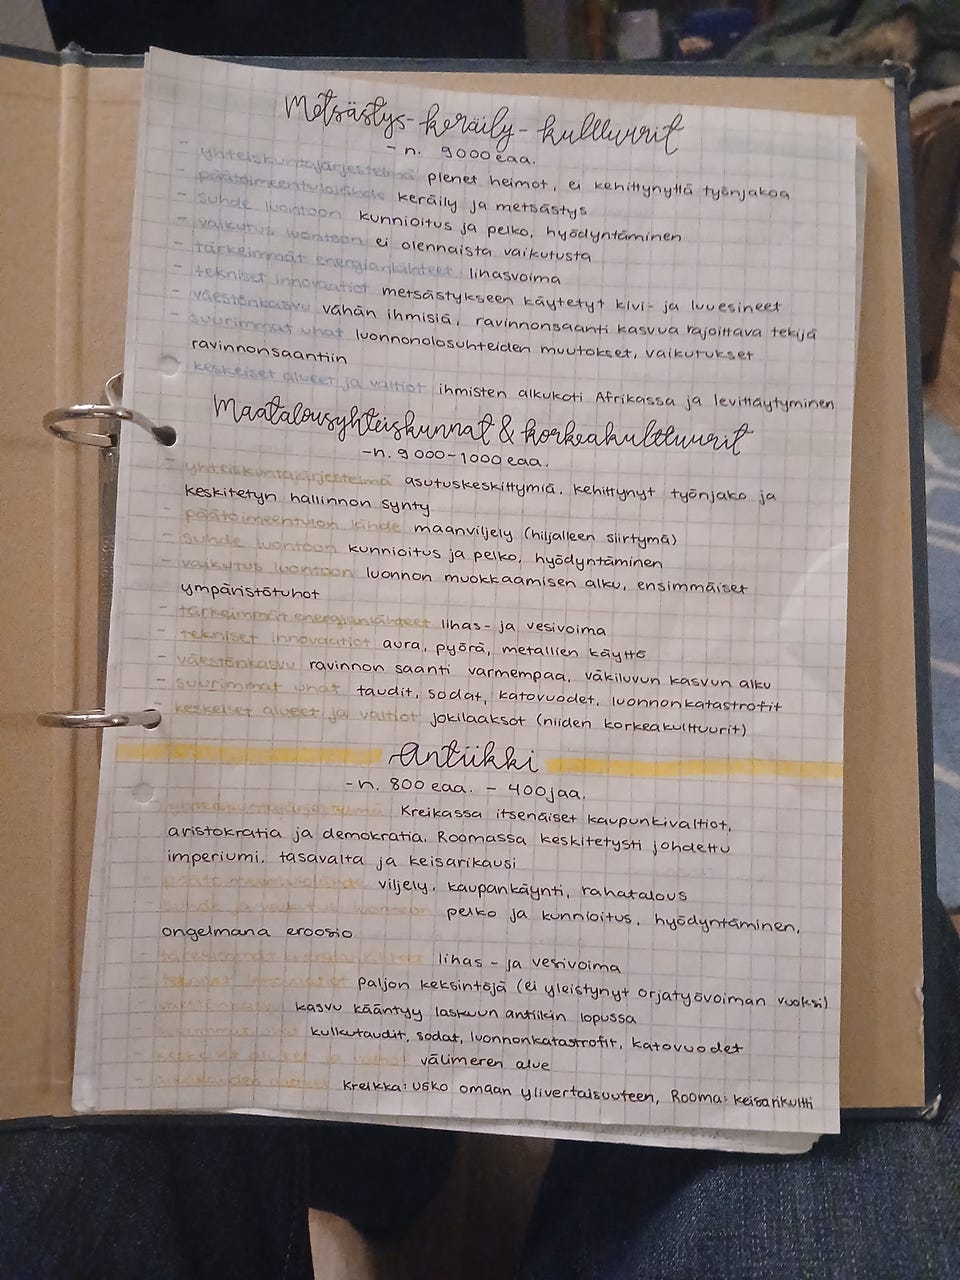 Metsästys-keräily-kulttuurit
- n. 9000 eaa.
- yhteiskuntajärjestelmä pienet heimot, ei kehittynyttä työnjakoa
- päätoimeentulolähde keräily ja metsästys
- suhde luontoon kunnioitus ja pelko, hyödyntäminen
- vaikutus luontoon ei olennaista vaikutusta
- tärkeimmät energianlähteet lihasvoima
- tekniset innovaatiot metsästykseen käytetyt kivi- ja luuesineet
- väestönkasvu vähän ihmisiä, ravinnonsaanti kasvua rajoittava tekijä
- suurimmat uhat luonnonolosuhteiden muutokset, vaikutukset
ravinnonsaantiin
- keskeiset alueet ja valtiot ihmisten alkukoti Afrikassa ja levittäytyminen
Maatalousyhteiskunnat & korkeakulttuurit
-n. 9000-1000 eaa.
- yhteiskuntajärjestelmä asutuskeskittymiä, kehittynyt työnjako ja
keskitetyn hallinnon synty
- päätoimeentulon lähde maanviljely (hiljalleen siirtymä)
- suhde luontoon kunnioitus ja pelko, hyödyntäminen
- vaikutus luontoon luonnon muokkaamisen alku, ensimmäiset
ympäristötuhot
- tärkeimmät energianlähteet lihas- ja vesivoima
- tekniset innovaatiot aura, pyörä, metallien käyttö
- väestönkasvu ravinnon saanti varmempaa, väkiluvun kasvun alku
- suurimmat uhat taudit, sodat, katovuodet, luonnonkatastrofit
- keskeiset alueet ja valtiot jokilaaksot (niiden korkeakulttuurit)
Antiikki
-n. 800 eaa. - 400 jaa.
- yhteiskuntajärjestelmä Kreikassa itsenäiset kaupunkivaltiot,
aristokratia ja demokratia. Roomassa keskitetysti johdettu
imperiumi, tasavalta ja keisarikausi
- viljely, kaupankäynti, rahatalous
- pelko ja kunnioitus, hyödyntäminen,
ongelmana eroosio
- lihas- ja vesivoima
- paljon keksintöjä (ei yleistynyt orjatyövoiman vuoksi)
- kasvu kääntyy laskuun antiikin lopussa
- kulkutaudit, sodat, luonnonkatastrofit, katovuodet
- välimeren alue
- Kreikka: usko omaan ylivertaisuuteen, Rooma: keisarikultti